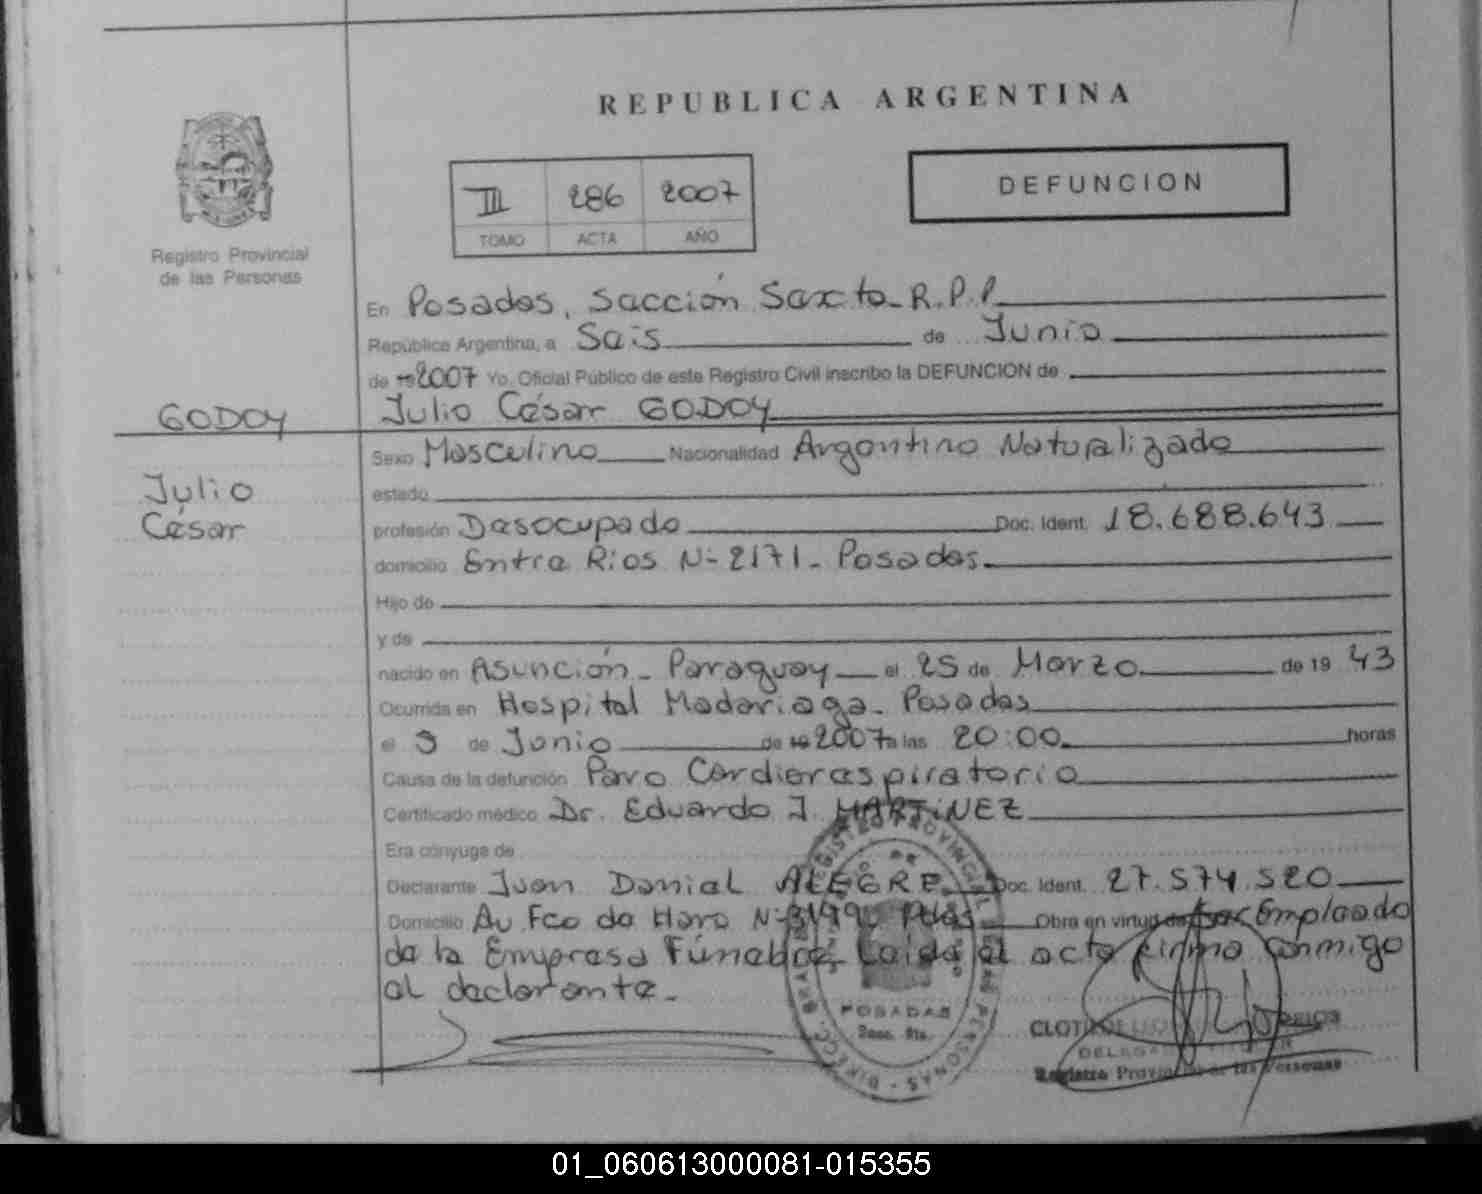 REPUBLICA ARGENTINA
III 286 2007
TOMO ACTA AÑO
DEFUNCION
Registro Provincial
de las Personas
En Posadas, Sección Sexta R.P.P.
República Argentina, a Seis de Junio
de 19 2007 Yo, Oficial Público de este Registro Civil inscribo la DEFUNCION de
GODOY
Julio César GODOY
Julio
César
Sexo Masculino Nacionalidad Argentino Naturalizado
estado
profesión Desocupado Doc. Ident. 18.688.643
domicilio Entre Rios N- 2171 - Posadas
Hijo de
y de
nacido en Asunción - Paraguay el 25 de Marzo de 19 43
Ocurrida en Hospital Madariaga - Posadas
el 3 de Junio de 19 2007 a las 20:00 horas
Causa de la defunción Paro Cardiorespiratorio
Certificado médico Dr. Eduardo J. MARTiNEZ
Era cónyuge de
Declarante Juan Daniel ALEGRE Doc. Ident. 27.574.520
Domicilio Av Fco de Haro N- Pdas Obra en virtud de ser Empleado
de la Empresa Fúnebre Leida el acta firma conmigo
el declarante.
POSADAS
DELEGADA TITULAR
Registro Provincial de las Personas
01_060613000081-015355